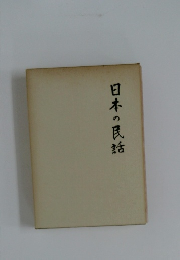 日本の民話